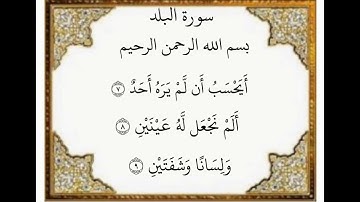 سورة البلد
بسم الله الرحمن الرحيم
أَيَحْسَبُ أَن لَّمْ يَرَهُ أَحَدٌ ٧
أَلَمْ نَجْعَل لَّهُ عَيْنَيْنِ ٨
وَلِسَانًا وَشَفَتَيْنِ ٩